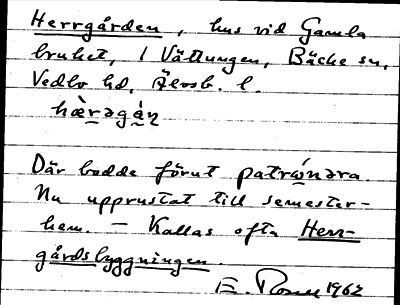 Herrgården, hus vid Gamla
bruket, i Vättungen, Bäcke sn,
Vedbo hd, Älvsb. l.
hæ̀rəgán̥
Där bodde förut patrónəra.
Nu upprustat till semester-
hem. – Kallas ofta Herr-
gårdsbyggningen.
E. 1962